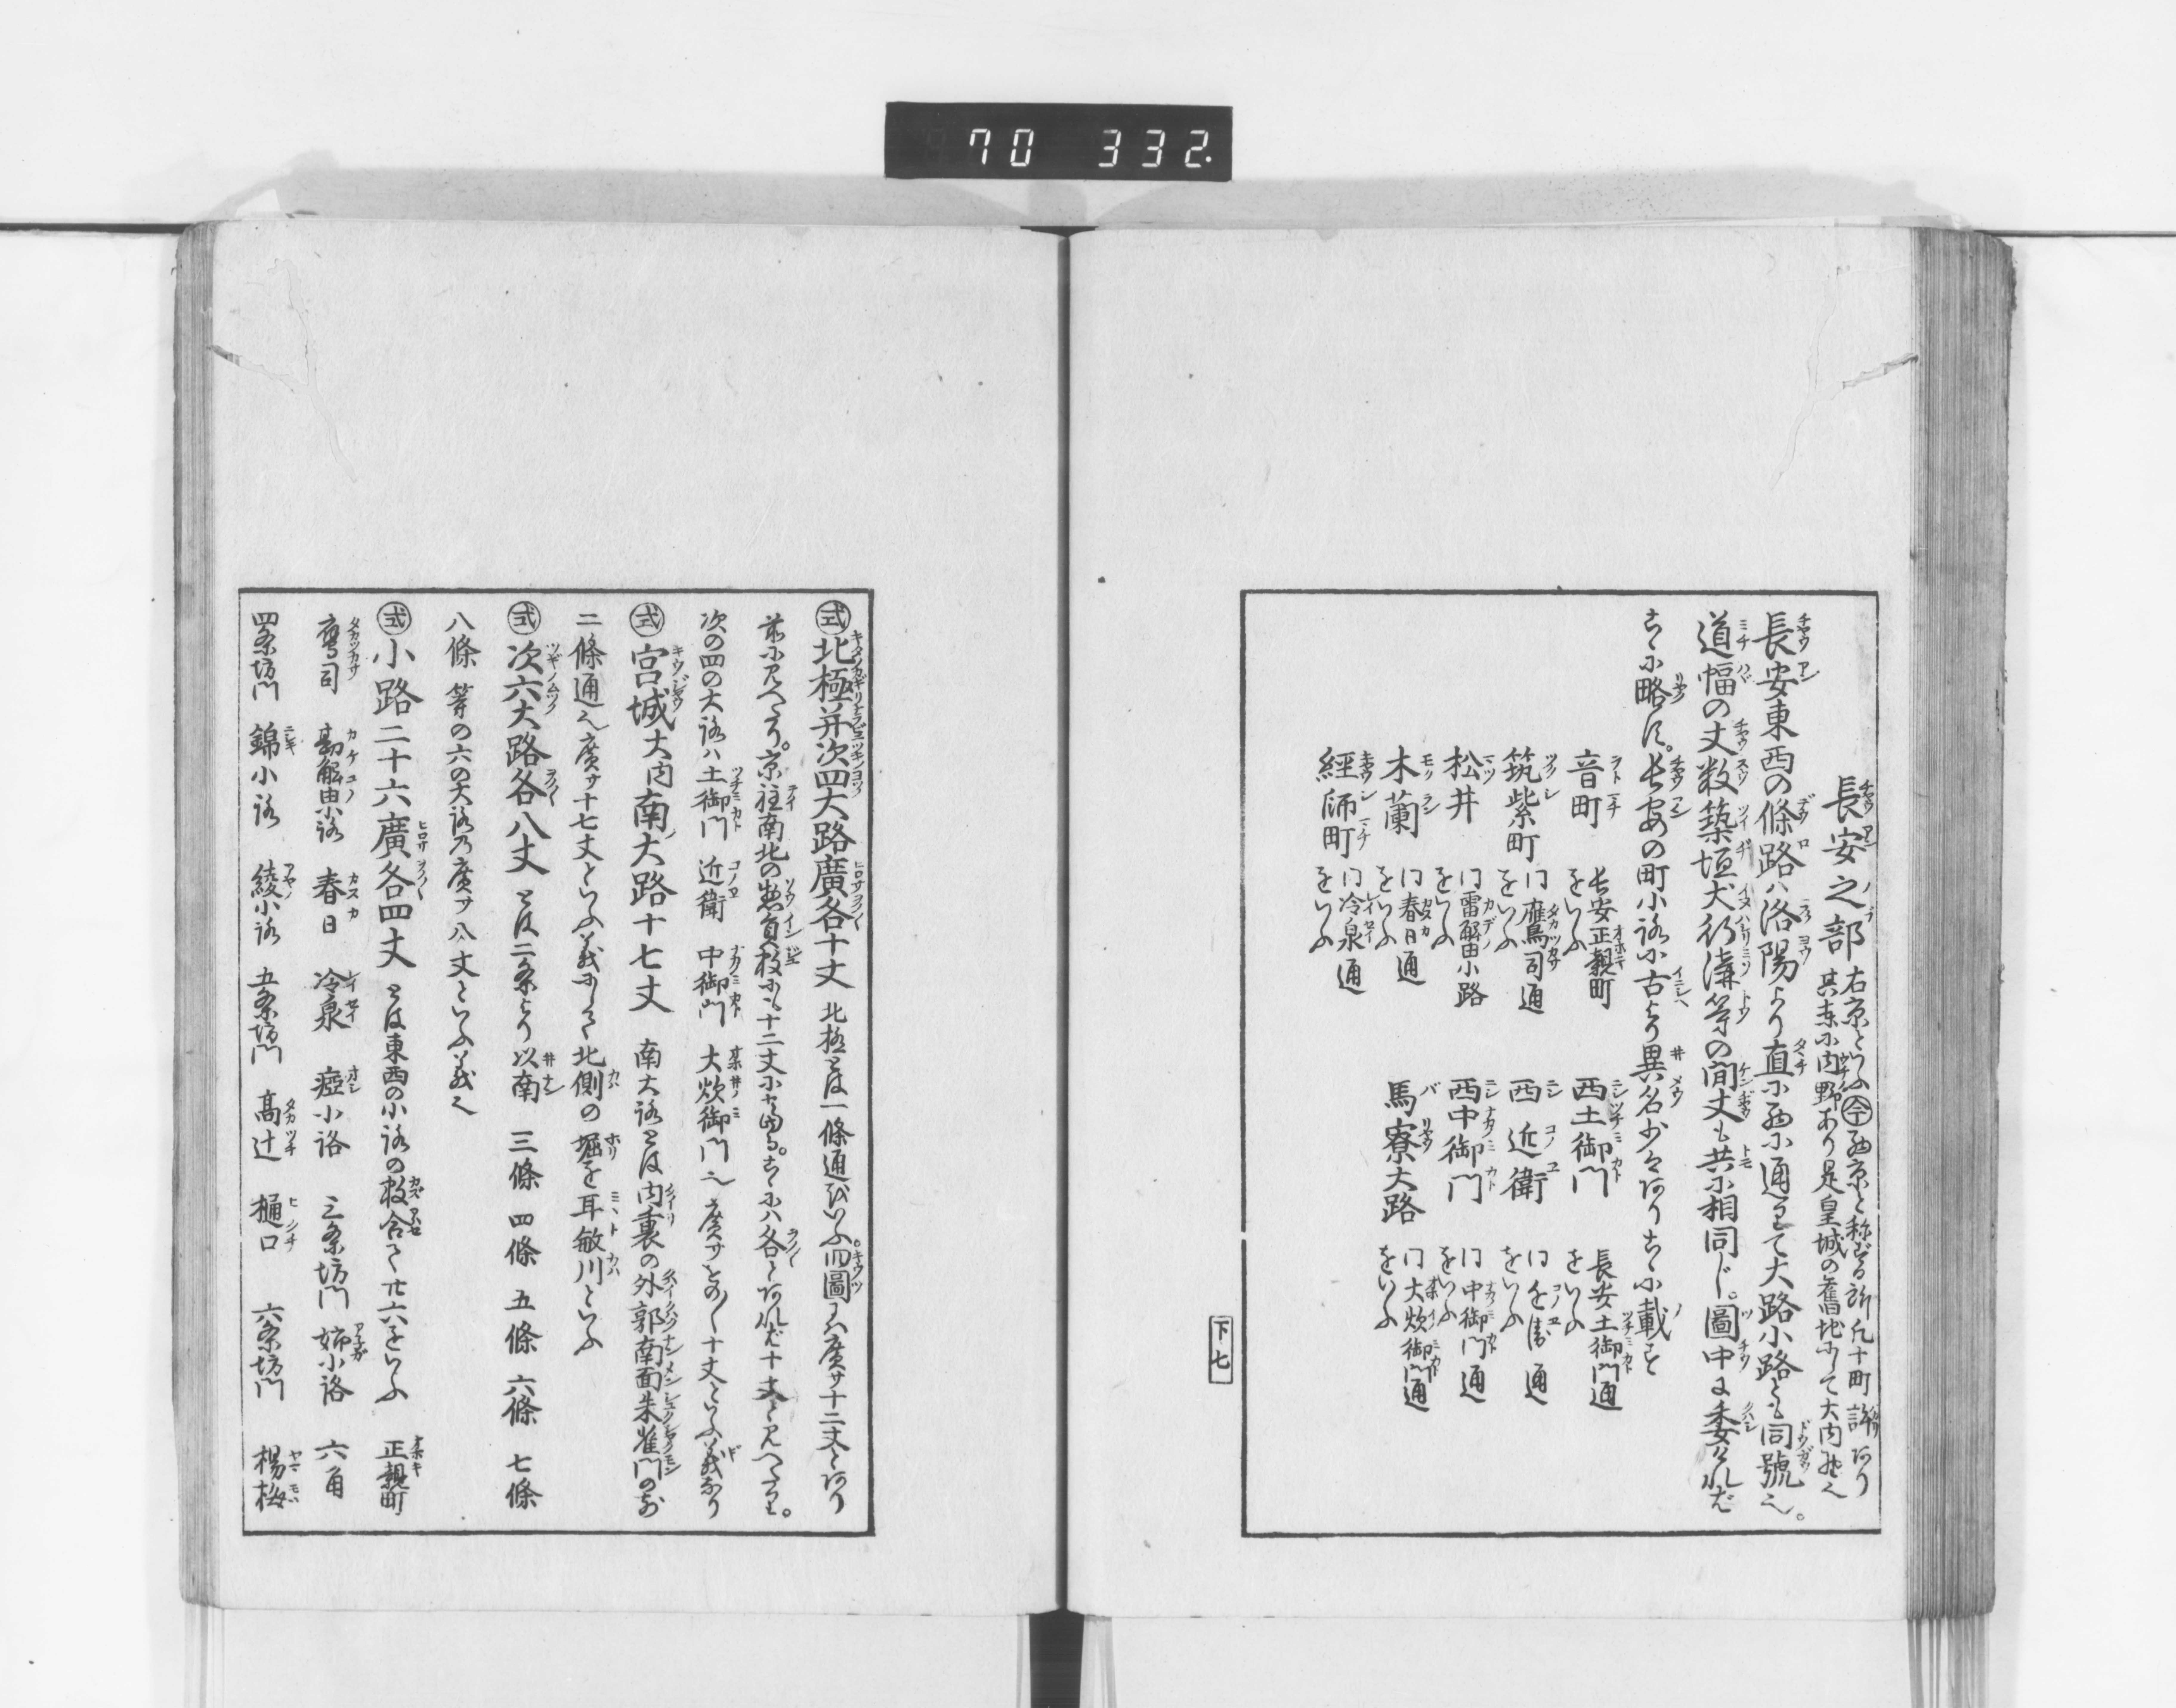 70 332.
長安之部 右京といふ 今 西京と称する所凡十町許あり
其東に内野あり是皇城の舊地にして大内野也
長安東西の條路ハ洛陽より直に西に通りて大路小路とも同號也。
道幅の丈数築垣犬行溝等の間丈も共に相同じ。圖中に委けれど
こゝに略す。長安の町小路に古より異名少々ありこゝに載す
音町 長安正親町をいふ
西土御門 長安土御門通をいふ
筑紫町 同鷹司通をいふ
西近衛 同近衛通をいふ
松井 同勘解由小路をいふ
西中御門 同中御門通をいふ
木蘭 同春日通をいふ
馬寮大路 同大炊御門通をいふ
經師町 同冷泉通をいふ
下七
式 北極并次四大路廣各十丈 北極とは一條通をいふ。旧圖に廣サ十二丈とあり
前に見へたり。京程南北の惣員数にも十二丈に当る。こゝにハ各とあれど十丈と見へたり。
次の四の大路ハ土御門 近衛 中御門 大炊御門也 廣サをの〱十丈といふ義なり
式 宮城大内南大路十七丈 南大路とは内裏の外郭南面朱雀門の前
二條通也廣サ十七丈といふ義にして北側の堀を耳敏川といふ
式 次六大路各八丈 とは二条より以南 三條 四條 五條 六條 七條
八條 等の六の大路乃廣サ八丈といふ義也
式 小路二十六廣各四丈 とは東西の小路の数合て廿六をいふ 正親町
鷹司 勘解由小路 春日 冷泉 瘂小路 三条坊門 姉小路 六角
四条坊門 錦小路 綾小路 五条坊門 高辻 樋口 六条坊門 楊梅